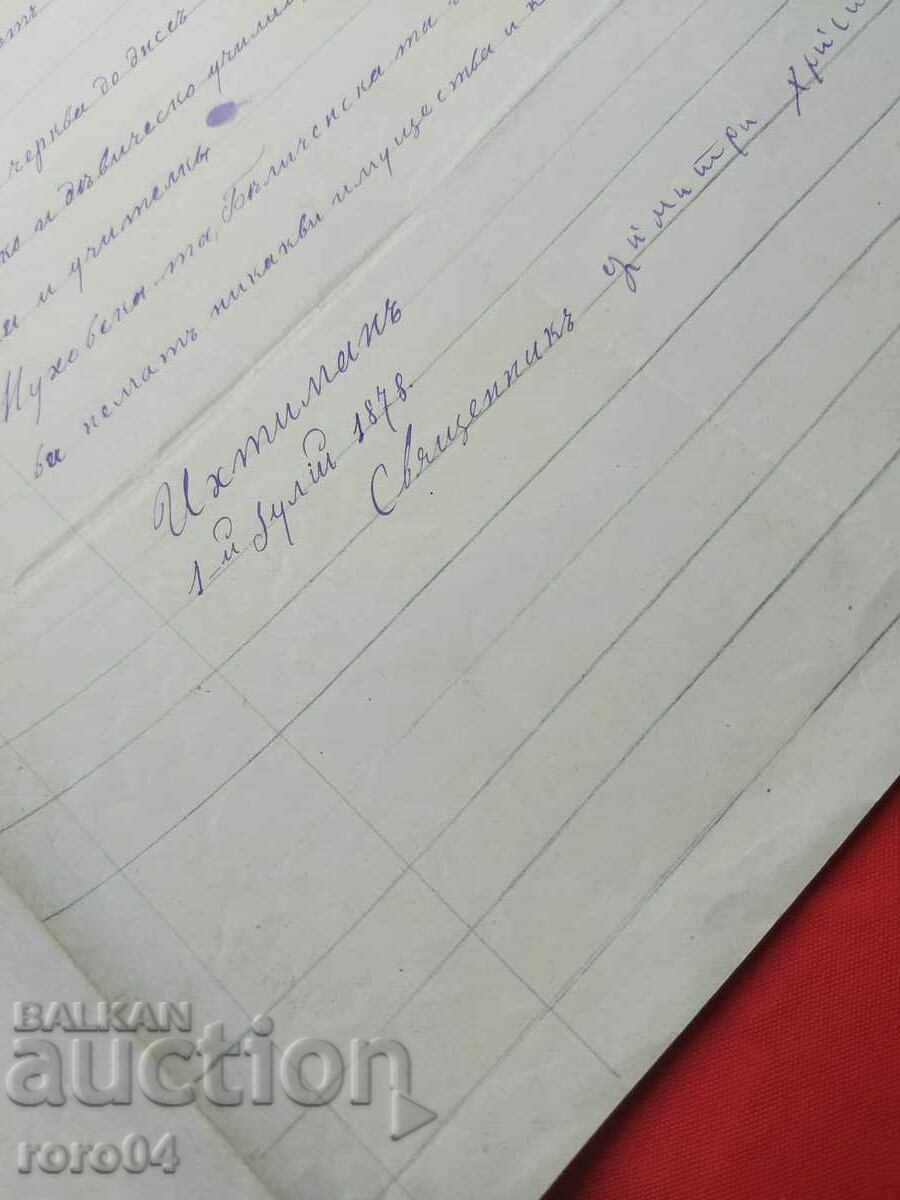 черква до днесъ
и дѣвическо учили
и учителки
Муховска-та, Бѣличенска та
ви нематъ никакви имущества и
Ихтиманъ
1-й Іулій 1878.
Священникъ Димитри Хри
BALKAN
auction
roro04